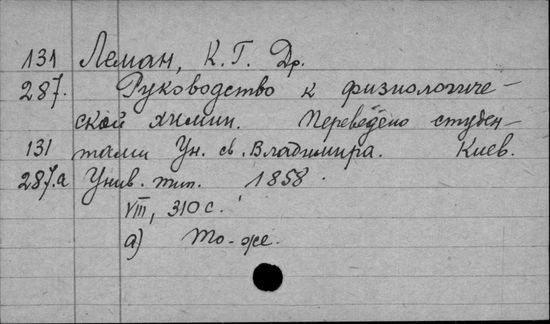 131 Леман, К. Г. Др.
287. Руководство к физиологиче-
ской химии. Переведено студен-
131 тами Ун. св. Владимира. Киев.
287.а Унив. тип. 1858.
VIII, 310 с.
а) То-же.